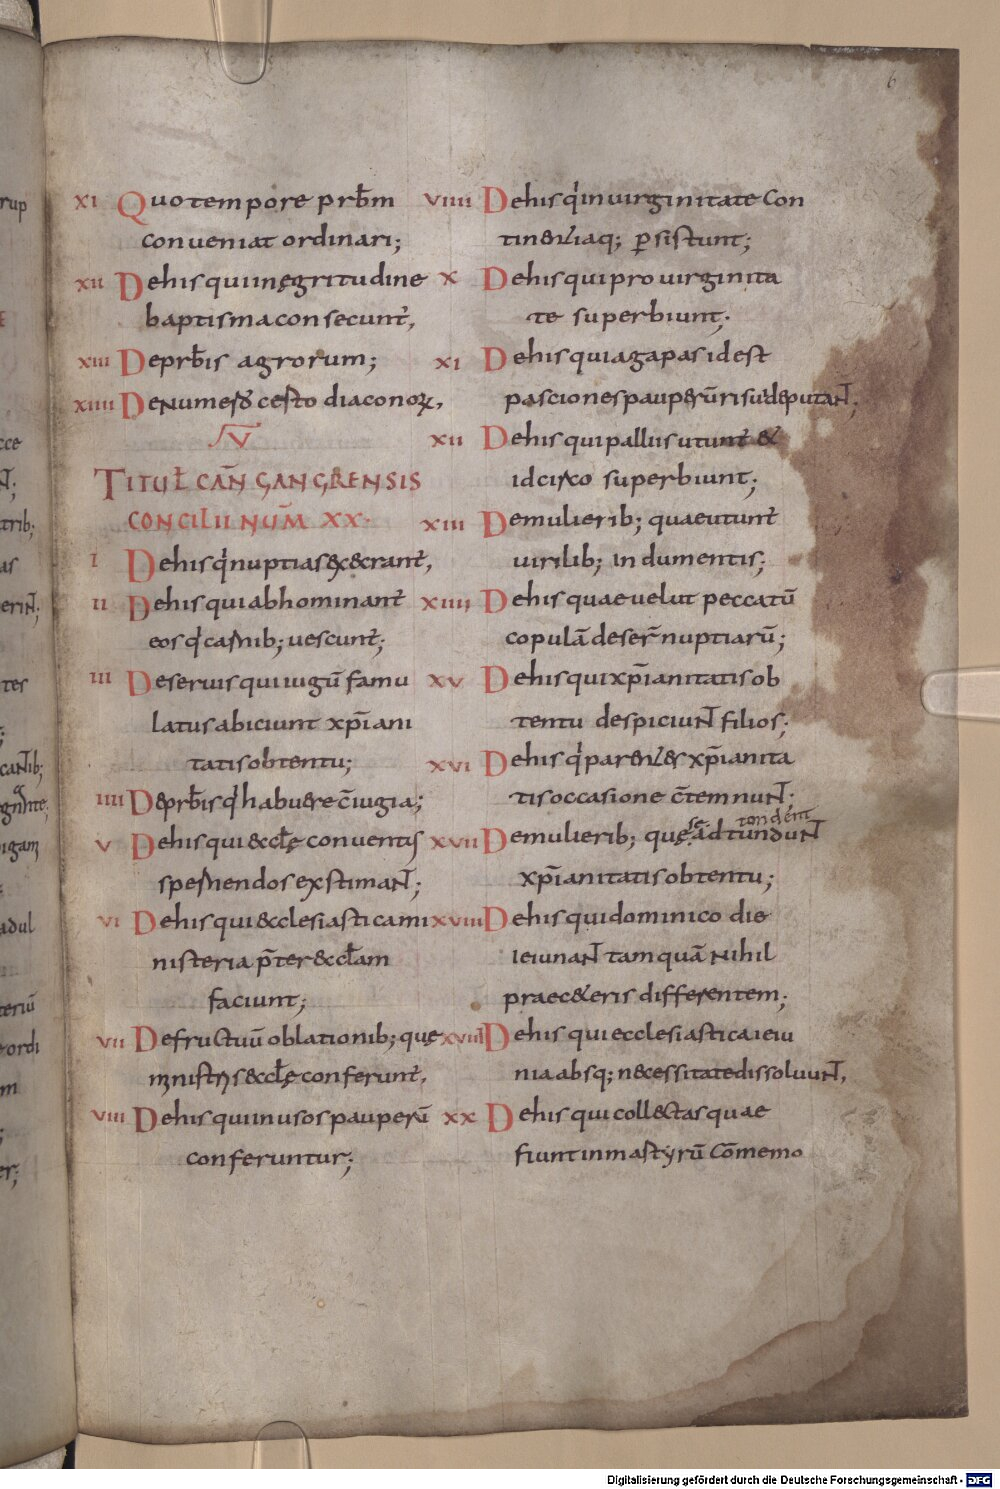 6
XI Quo tempore prb̄m
conueniat ordinari;
XII De his qui in ęgritudine
baptisma consecunt̄,
XIII De prb̄is agrorum;
XIIII De numero certo diaconoꝝ,
V
TITUŁ CAN̄ GANGRENSIS
CONCILII NUM̄ XX·
I De his qui nuptias execrant̄,
II De his qui abhominant̄
eos qui carnib; uescunt̄;
III De seruis qui iugū famu
latus abiciunt xp̄iani
tatis obtentu;
IIII De prb̄is qui habuere c̄iugia;
V De his qui eccłę conuentus
spernendos existimant;
VI De his qui ecclesiastica mi
nisteria p̄ter eccłam
faciunt;
VII De fructuū oblationib; quę
ministris eccłę conferunt̄,
VIII De his qui in usos pauperū
conferuntur;
VIIII De his qui in uirginitate con
tinentiaq; ꝑsistunt;
X De his qui pro uirginita
te superbiunt;
XI De his qui agapas id est
pasciones pauperū risui deputant;
XII De his qui palliis utunt et
idcirco superbiunt;
XIII De mulierib; quae utunt̄
uirilib; indumentis;
XIIII De his quae uelut peccatū
copulā deser̄ nuptiarū;
XV De his qui xp̄ianitatis ob
tentu despiciunt filios;
XVI De his qui parentes xp̄ianita
tis occasione c̄temnunt;
se tondent
XVII De mulierib; quę adtundunt
xp̄ianitatis obtentu;
XVIII De his qui dominico die
ieiunant tamquā nihil
praeceteris differentem;
XVIIII De his qui ecclesiastica ieiu
nia absq; necessitate dissoluunt,
XX De his qui collectas quae
fiunt in martyrū com̄emo
Digitalisierung gefördert durch die Deutsche Forschungsgemeinschaft - DFG